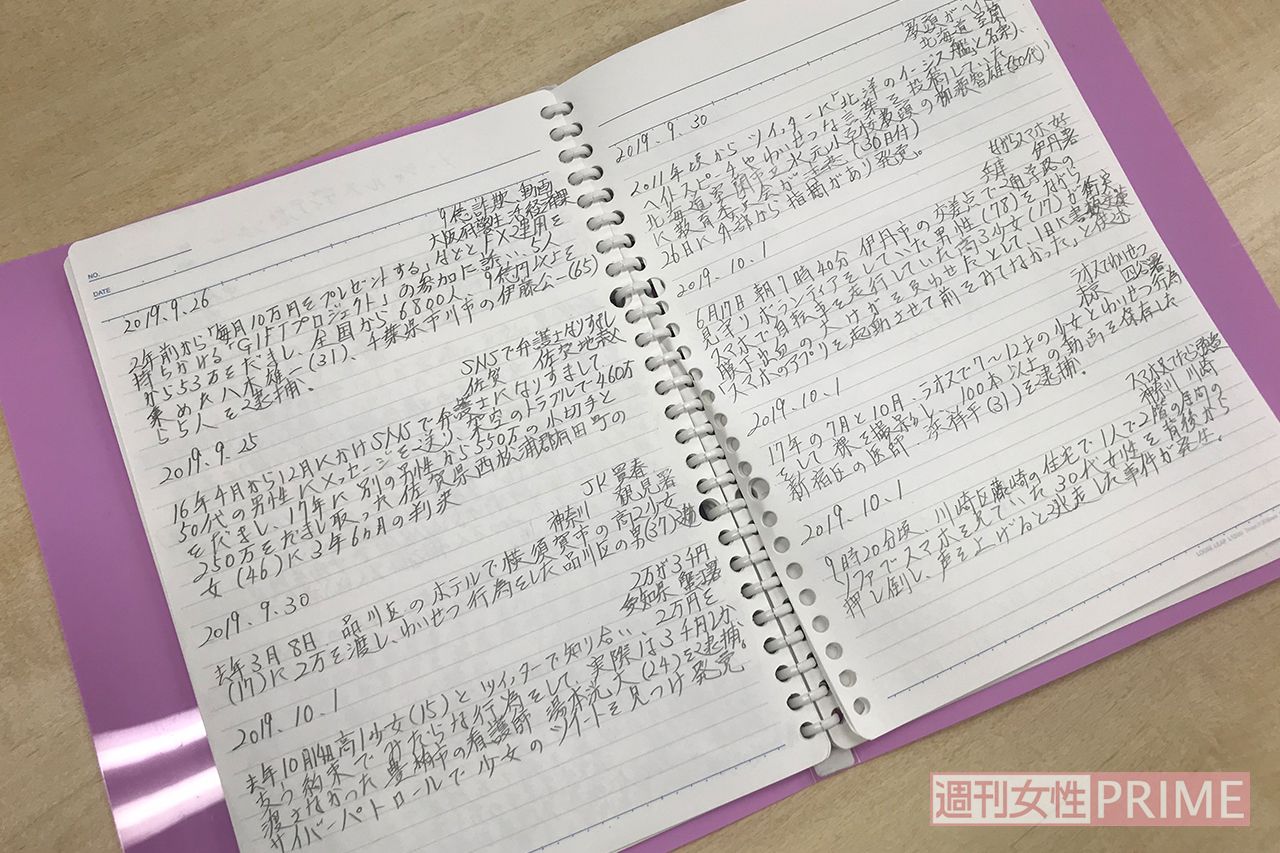 NO.
DATE
9億詐欺、動画
大阪府警生活経済課
2019.9.26
2年前から「毎月10万円をプレゼントする」などとFX運用を
持ちかける「GIFTプロジェクト」の参加に誘い、5人
から553万をだまし、全国から6800人、9億円以上を
集めた八木雄一(31)、千葉県市川市の伊藤公一(65)
ら5人を逮捕。
SNSで弁護士なりすまし
佐賀 佐賀地裁
2019.9.25
16年4月から12月にかけSNSで弁護士になりすまして
50代の男性にメッセージを送り、架空のトラブルで460万
をだまし、17年に別の男性から350万の小切手と
250万をだまし取った佐賀県西松浦郡有田町の
女(46)に3年6ヵ月の判決
JK買春
神奈川 鶴見署
2019.9.30
去年3月8日、品川区のホテルで横須賀市の高2少女
(17)に2万を渡し、わいせつ行為をした品川区の男(37)逮捕
2万が3千円
愛知県 蟹江署
2019.10.1
去年10月14日高1少女(15)とツイッターで知り合い、2万円を
支う約束でみだらな行為をして、実際は3千円しか
渡さなかった豊橋市の看護師 湯本光大(24)を逮捕。
サイバーパトロールで少女のツイートを見つけ発覚。
教頭がヘイト
北海道 室蘭
2019.9.30
2011年頃からツイッターに「北洋のイージス艦」と名乗り、
ヘイトスピーチやわいせつな言葉を投稿していた
北海道室蘭市立水元小学校教頭の柳沢智雄(50代)
に教育委員会が告発(30日付)
26日に外部から指摘があり発覚。
ながらスマホ女子
兵庫 伊丹署
2019.10.1
6月17日朝7時40分 伊丹市の交差点で通学路の
見守りボランティアをしていた男性(78)をながら
スマホで自転車を走行していた高3少女(17)が衝突
スマホのアプリを起動させて前をみてなかった」と供述
ラオスでわいせつ
東京 四谷署
2019.10.1
17年の7月と10月、ラオスで7〜12才の少女とわいせつ行為
をして裸を撮影し、100本以上の動画を保存した
新宿区の医師 祥平(31)を逮捕。
神奈川 川崎
2019.10.1
9時20分頃、川崎区藤崎の住宅で1人で2階の居間の
ソファでスマホを見ていた30代女性を背後から
押し倒し、声を上げると逃走した事件が発生。
週刊女性PRIME